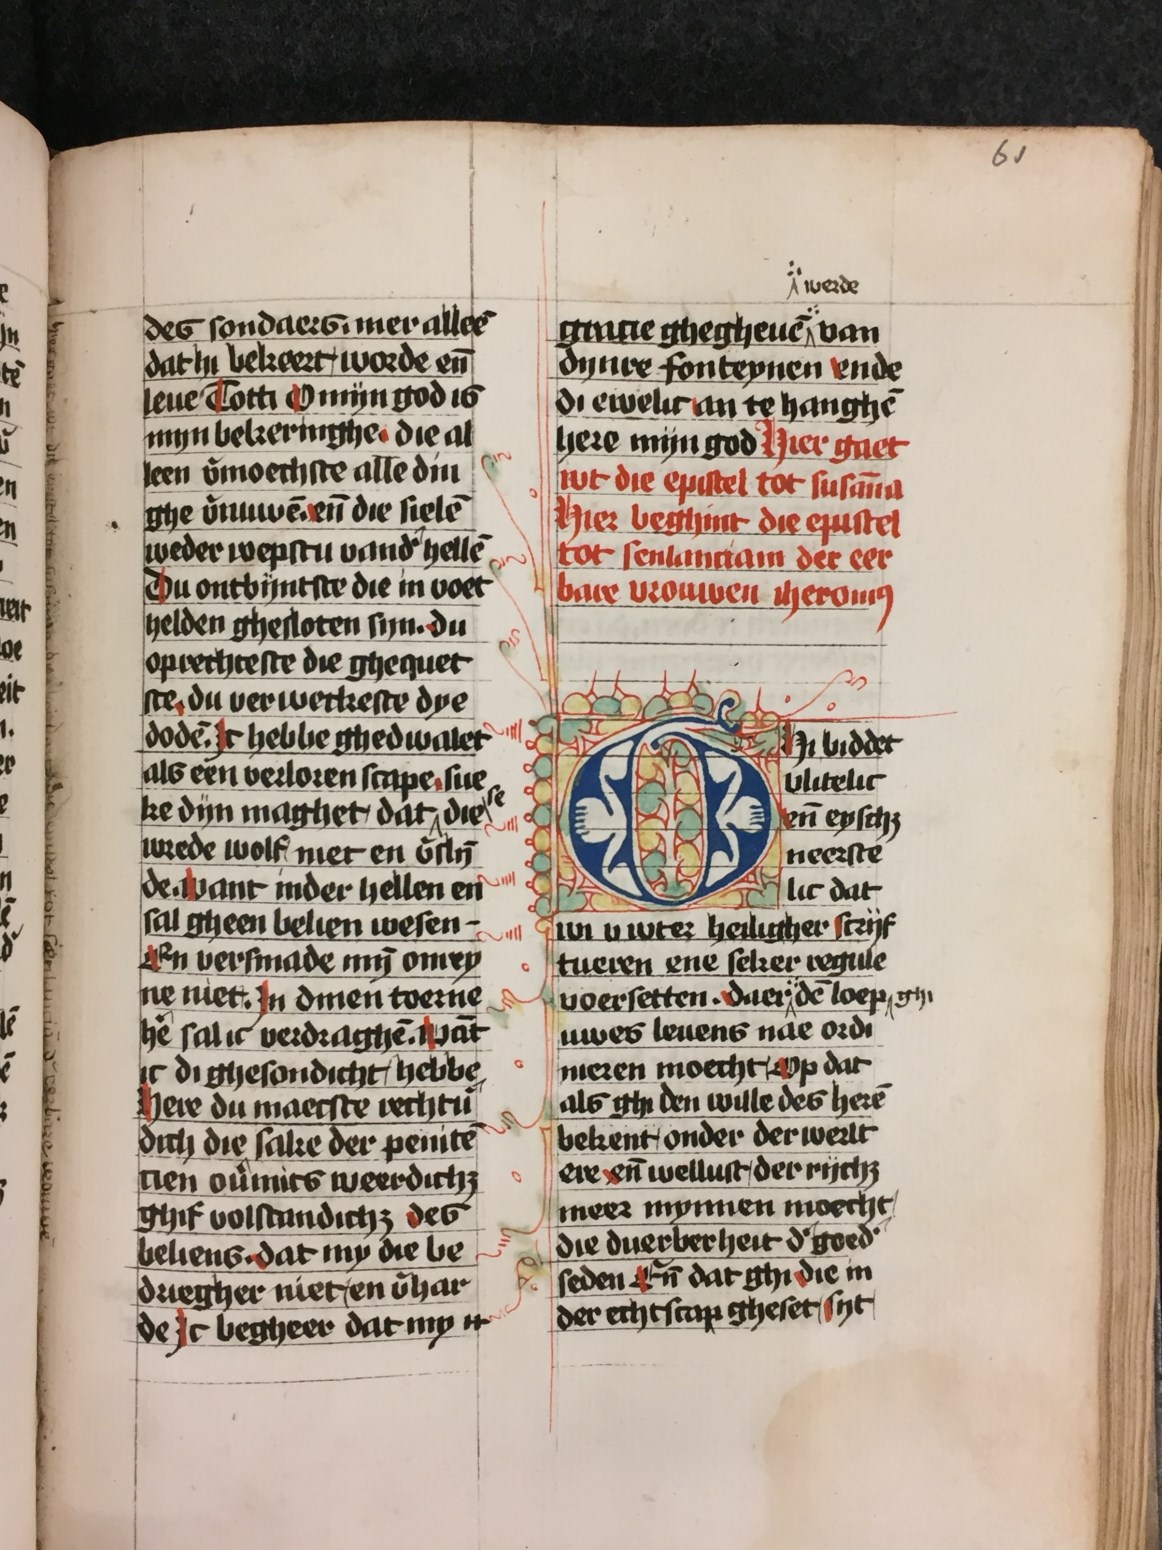 61
des sondaers. mer allee
dat hi bekeert worde eñ
leue Totti O mijn god is
mijn bekeringhe. die al
leen v̄moechste alle din
ghe v̄nuwē. eñ die sielē
weder wepstu vand' hellē
Du ontbijntste die in voet
helden ghesloten sijn. du
oprechteste die ghequet
ste, du verwerkeste dye
dodē. Ic hebbe ghedwaelt
als een verloren scape. sue
ke dijn maghet dat die se
wrede wolf niet en v̄slīn
de. want inder hellen en
sal gheen belien wesen -
En versmade mij onrey
ne niet. In dinen toerne
hē sal ic verdraghē. Wāt
ic di ghesondicht hebbe
Here du maecste rechtu
dich die sake der penitē
tien ou̅mits weerdichȝ
ghif volstandichȝ des
beliens. dat my die be
driegher niet en v̄har
de Ic begheer dat my w
werde
gracie ghegheuē van
dijnre fonteynen ende
di ewelic an te hanghē
here mijn god Hier gaet
wt die epistel tot susāna
Hier beghint die epistel
tot senlanciam der eer
bare vrouwen iheronimꝰ
O Hi biddet
vlitelic
eñ eyschȝ
neerste
lic dat
wi v wter heiligher scrijf
tueren ene seker regule
voersetten. daer dē loep ghi
uwes leuens nae ordi
nieren moecht Op dat
als ghi den wille des herē
bekent onder der werlt
ere eñ wellust der rijchȝ
meer mynnen moecht
die duerberheit d' goed'
seden Eñ dat ghi die in
der echtscap gheset sijt